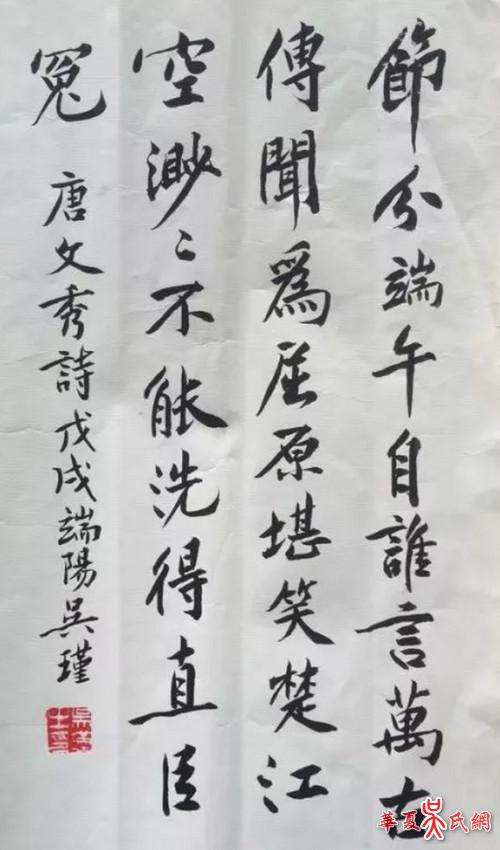 節分端午自誰言萬古
傳聞爲屈原堪笑楚江
空渺〻不能洗得直臣
冤
唐文秀詩戊戌端陽吳瑾
華夏吳氏網